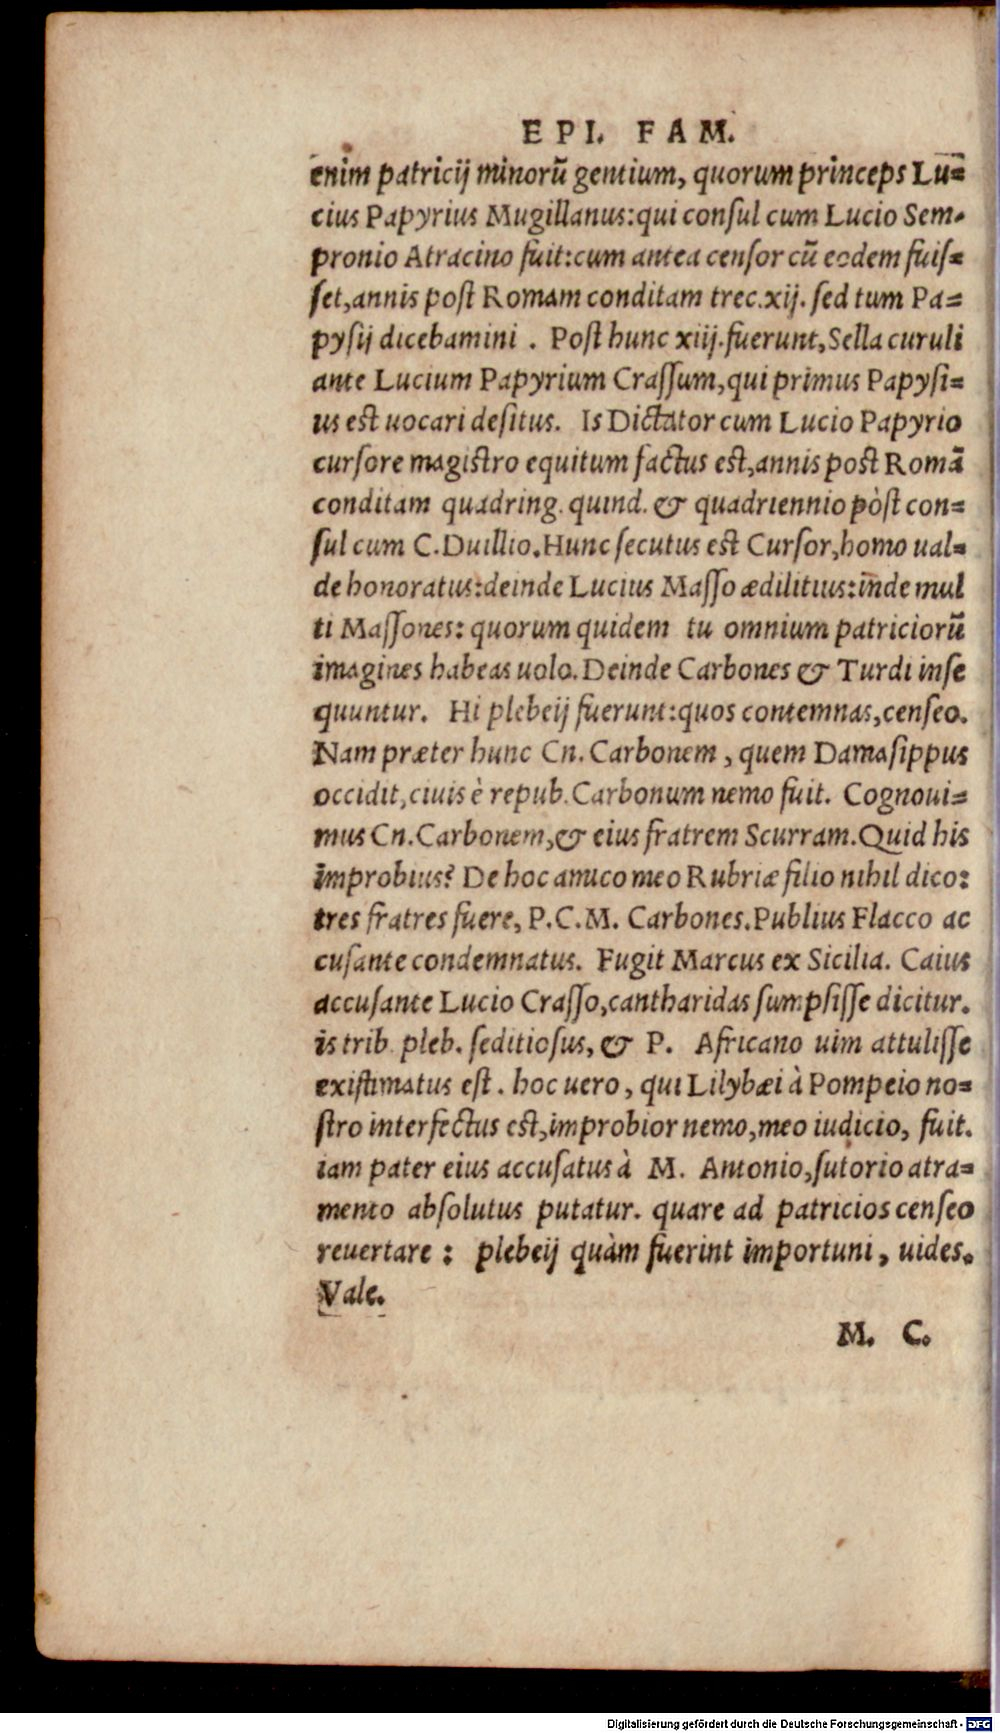 EPI. FAM.
enim patricij minorũ gentium, quorum princeps Lu=
cius Papyrius Mugillanus:qui consul cum Lucio Sem-
pronio Atracino fuit:cum antea censor cũ eodem fuis=
set,annis post Romam conditam trec.xij. sed tum Pa=
pysij dicebamini . Post hunc xiij.fuerunt,Sella curuli
ante Lucium Papyrium Crassum,qui primus Papysi=
us est uocari desitus. Is Dictator cum Lucio Papyrio
cursore magistro equitum factus est,annis post Romã
conditam quadring. quind. & quadriennio pòst con=
sul cum C.Duillio.Hunc secutus est Cursor,homo ual=
de honoratus:deinde Lucius Masso ædilitius:inde mul
ti Massones: quorum quidem tu omnium patriciorũ
imagines habeas uolo. Deinde Carbones & Turdi inse
quuntur. Hi plebeij fuerunt:quos contemnas,censeo.
Nam præter hunc Cn. Carbonem , quem Damasippus
occidit,ciuis è repub.Carbonum nemo fuit. Cognoui=
mus Cn.Carbonem,& eius fratrem Scurram.Quid his
improbius? De hoc amico meo Rubriæ filio nihil dico:
tres fratres fuere, P.C.M. Carbones.Publius Flacco ac
cusante condemnatus. Fugit Marcus ex Sicilia. Caius
accusante Lucio Crasso,cantharidas sumpsisse dicitur.
is trib. pleb. seditiosus, & P. Africano uim attulisse
existimatus est . hoc uero , qui Lilybæi à Pompeio no=
stro interfectus est,improbior nemo,meo iudicio, fuit.
iam pater eius accusatus à M. Antonio,sutorio atra=
mento absolutus putatur. quare ad patricios censeo
reuertare : plebeij quàm fuerint importuni , uides.
Vale.
M. C.
Digitalisierung gefördert durch die Deutsche Forschungsgemeinschaft - DFG